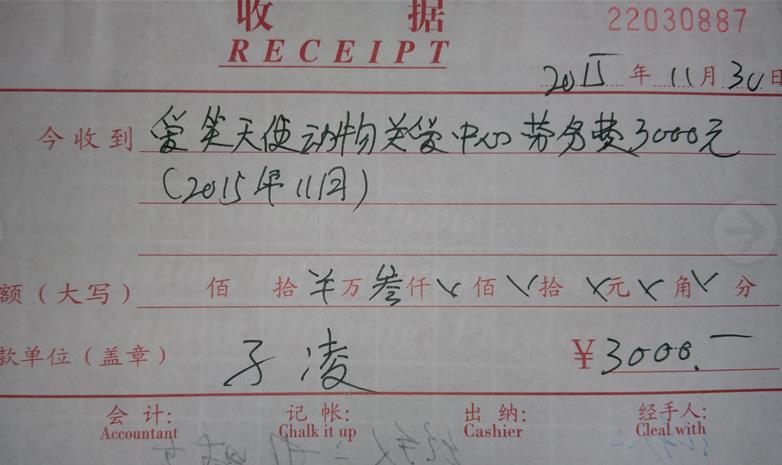 收 据 22030887
RECEIPT
2015年11月30日
今收到 爱笑天使动物关爱中心劳务费3000元
(2015年11月)
额(大写) 佰 拾 ¥万叁仟 佰 拾 元 角 分
款单位(盖章) 子凌 ¥3000.—
会 计: 记 帐: 出 纳: 经手人:
Accountant Chalk it up Cashier Cleal with